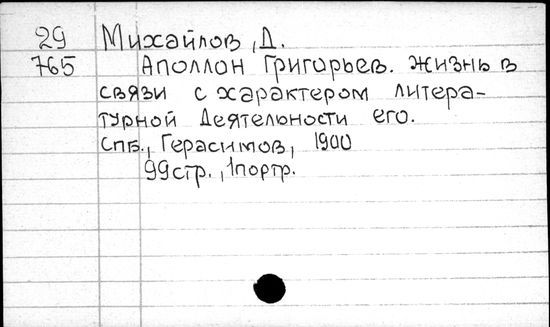 29 Михайлов, Д.
765 Аполлон Григорьев. Жизнь в
связи с характером литера-
турной деятельности его.
Спб., Герасимов, 1900
99 стр., 1 портр.